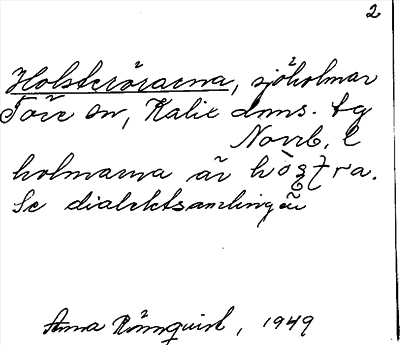 2
Holsterörarna, sjöholmar
Töre sn, Kalix dnms. tg
Norrb. l
holmarna är
Se dialektsamlingar
Anna Rönnquist, 1949